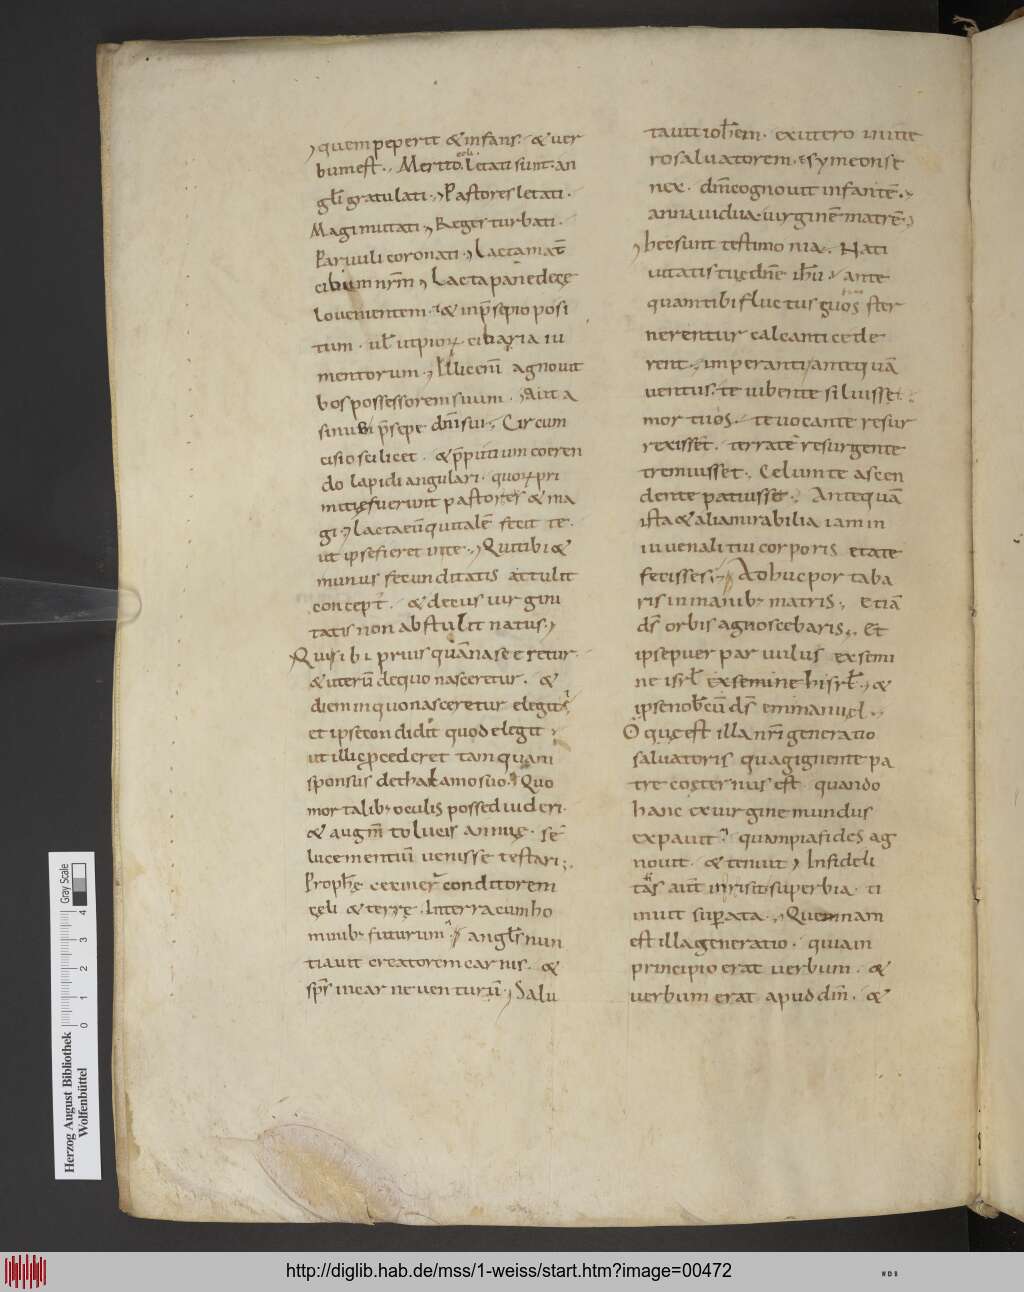 quem peperit & infans. & uer
bum est. Merito celi letati sunt. an
gl̄i gratulati. Pastores letati.
Magi mutati. Reges turbati.
Paruuli coronati. Lacta mat̄
cibum nr̄m. Lacta panē de cę
lo uenientem. & in p̄sepio posi
tum. ul̄ ut pioꝝ cibaria iu
mentorum. Illic eni agnouit
bos possessorem suum. & a
sinus p̄sepe dn̄i sui. Circum
cisio scilicet. & p̄putium coeren
do lapidi angulari. quoꝝ pri
mitię fuerunt pastores & ma
gi. Lacta eū qui talē fecit te.
ut ipse fieret in te. Qui tibi &
munus fecunditatis attulit
conceptꝰ. & decus uirgini
tatis non abstulit natus.
Qui sibi prius quā nasceretur.
& uterū de quo nasceretur. &
diem in quo nasceretur elegit.
et ipse condidit quod elegit.
ut illic p̄cederet tamquam
sponsus de thalamo suo. Quo
mortalib; oculis possed uideri.
& augm̄to lucis annuę. se
luce mentiū uenisse testari.
Prophetę cecinerꝰ conditorem
cęli & terrę. In terra cum ho
minib; futurum. angl̄s nun
tiauit creatorem carnis. &
sp̄s in carne uenturū. Salu
tauit ioh̄em. ex utero in ute
ro saluatorem. symeon se
nex. dm̄ cognouit infantē.
anna uidua. uirginē matrē.
hęc sunt testimonia. Nati
uitatis tuę dn̄e ih̄u. ante
quam tibi fluctus quos ster
nerentur calcanti. cede
rent imperanti. antequā
uentus. te iubente siluisset.
mortuos. te uocante resur
rexisset. terra te resurgente
tremuisset. Celum te ascen
dente patuisset. Antequā
ista & alia mirabilia iam in
iuuenali tui corporis etate
fecisses. Adhuc portaba
ris in manib; matris. Etiā
ds̄ orbis agnoscebaris. Et
ipse puer paruulus ex semi
ne isrl̄. ex semine hisrl̄. &
ipse nobiscū ds̄ emmanuęl.
O quę est illa nr̄i generatio
saluatoris qua gignente pa
tre coęternus est. quando
hanc ex uirgine mundus
expauit. quam pia fides ag
nouit. & tenuit. Infideli
tas aut̄ inrisit superbia. ti
muit superata. Quemnam
est illa generatio. qua in
principio erat uerbum. &
uerbum erat apud dm̄. &
Herzog August Bibliothek
Wolfenbüttel
0 1 2 3 4
Gray Scale
http://diglib.hab.de/mss/1-weiss/start.htm?image=00472